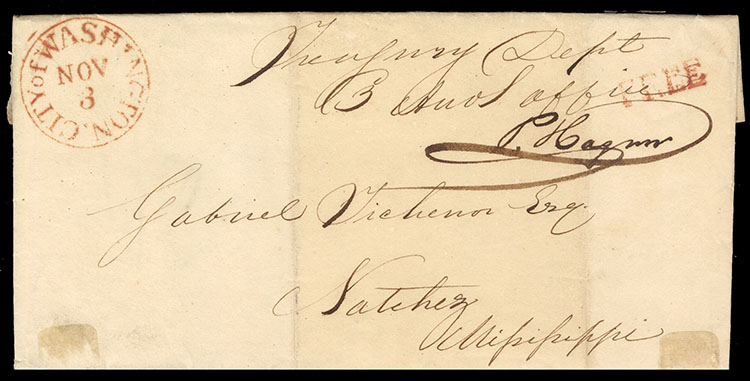 CITY of WASHINGTON.
NOV
3
Treasury Dept
3 Aud office
FREE
P. Hagner
Gabriel Tichenor Esq.
Natchez
Missisippi